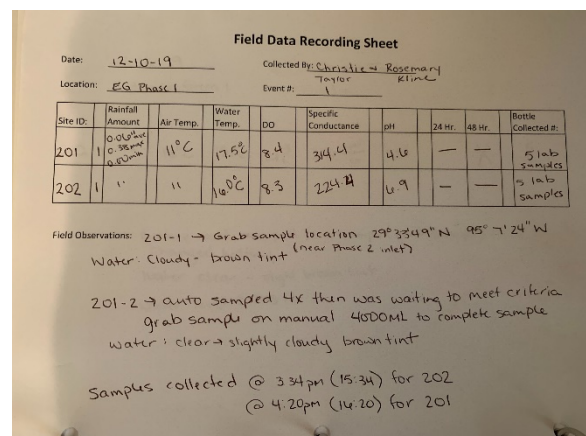 Field Data Recording Sheet
Date: 12-10-19 Collected By: Christie Taylor Rosemary Kline
Location: EG Phase 1 Event #: 1
Site ID: Rainfall Amount Air Temp. Water Temp. DO Specific Conductance pH 24 Hr. 48 Hr. Bottle Collected #:
201 1 0.06 ave 0.38 max 0.00 min 11°C 17.5°C 8.4 314.4 4.6 — — 5 lab samples
202 1 " " 16.0°C 8.3 224.4 6.9 — — 5 lab samples
Field Observations: 201-1 → Grab sample location 29°33'49" N 95° 7'24" W
(near Phase 2 inlet)
Water: Cloudy - brown tint
201-2 → auto sampled 4x then was waiting to meet criteria
grab sample on manual 4000ML to complete sample
water: clear → slightly cloudy brown tint
Samples collected @ 3 34pm (15:34) for 202
@ 4:20pm (16:20) for 201